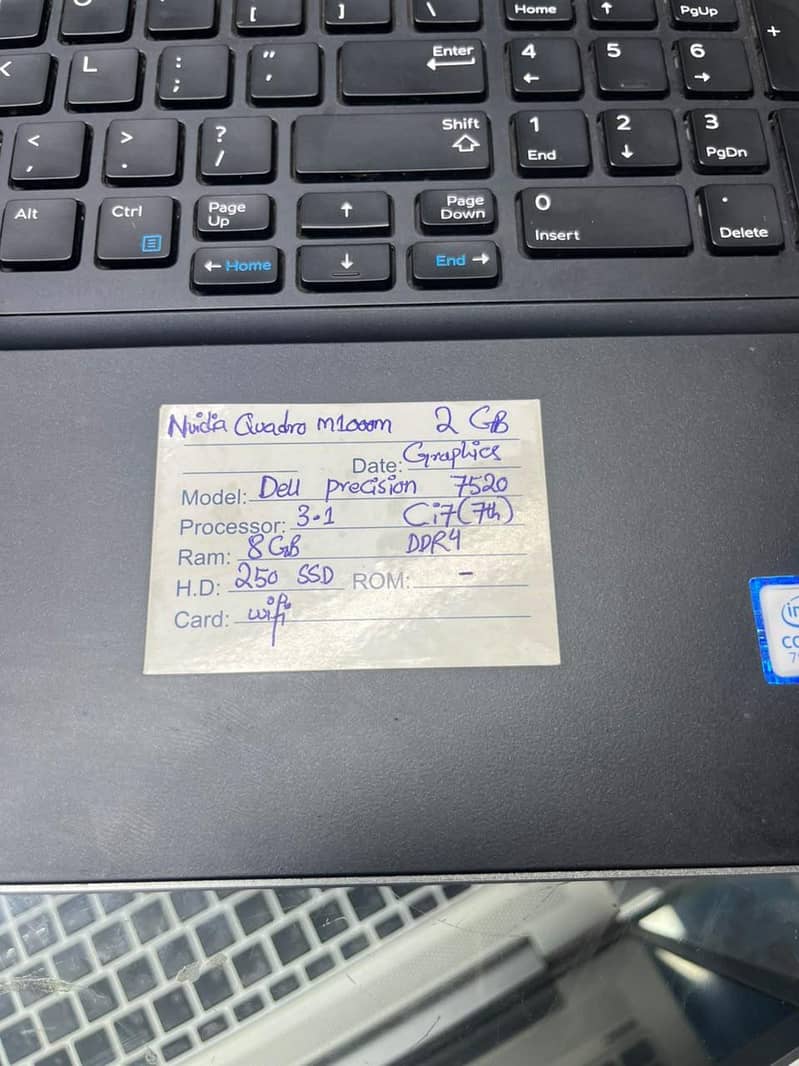 [ ] \ Home ↑ PgUp
< L : ; " ' Enter 4 ← 5 6 → +
< , > . ? / Shift 1 End 2 ↓ 3 PgDn
Alt Ctrl Page Up ↑ Page Down 0 Insert . Delete
← Home ↓ End →
Nvidia Quadro M1000M 2 GB
Date: Graphics
Model: Dell precision 7520
Processor: 3.1 Ci7(7th)
Ram: 8GB DDR4
H.D: 250 SSD ROM: -
Card: wifi